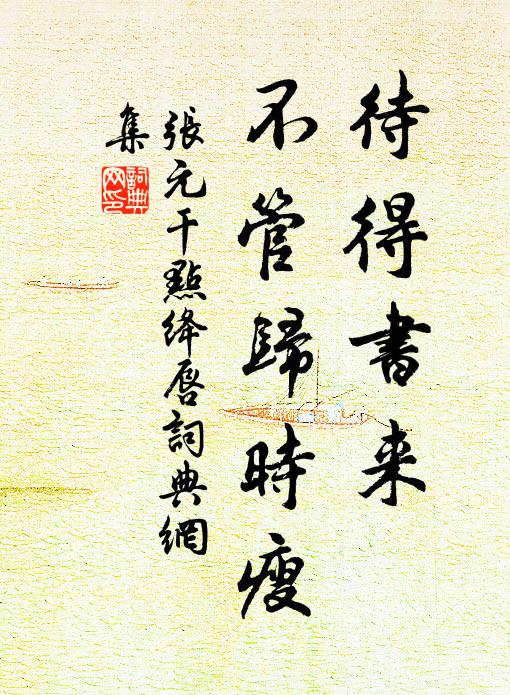 待得書来
不管歸時瘦
張元干點绛唇詞典網
集
詞典網印